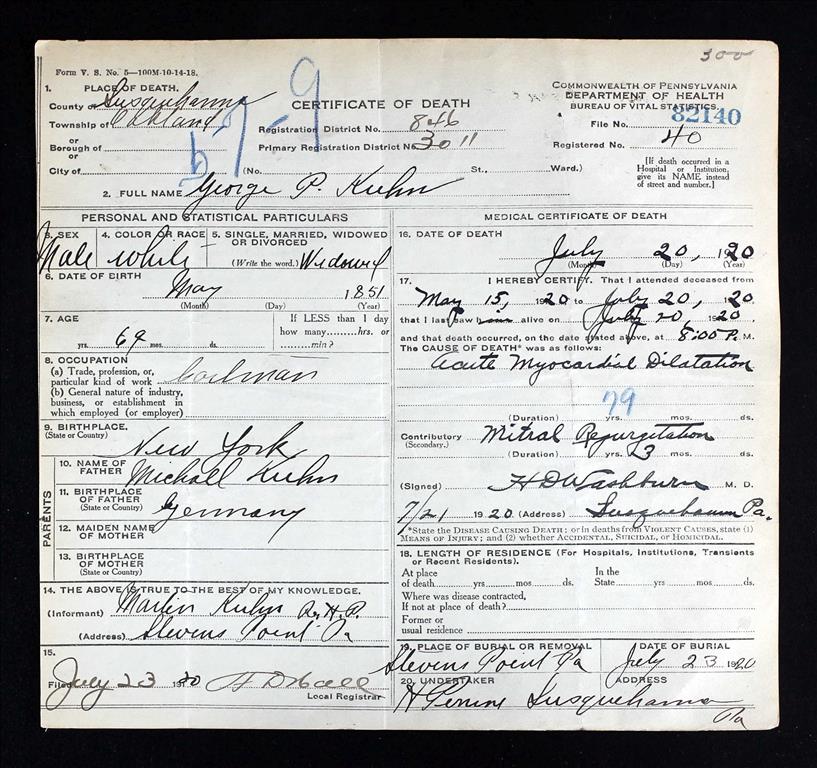 300
Form V. S. No. 5—100M-10-14-18.
1. PLACE OF DEATH.
County of Susquehanna
Township of Oakland
or
Borough of
or
City of
CERTIFICATE OF DEATH
Registration District No. 846
Primary Registration District No. 3011
(No. St., Ward.)
COMMONWEALTH OF PENNSYLVANIA
DEPARTMENT OF HEALTH
BUREAU OF VITAL STATISTICS.
File No. 82140
Registered No. 40
[If death occurred in a
Hospital or Institution,
give its NAME instead
of street and number.]
2. FULL NAME George P. Kuhn
PERSONAL AND STATISTICAL PARTICULARS
3. SEX Male
4. COLOR OR RACE White
5. SINGLE, MARRIED, WIDOWED
OR DIVORCED
(Write the word.) Widowed
6. DATE OF BIRTH
May 1851
(Month) (Day) (Year)
7. AGE
69 yrs. mos. ds.
If LESS than 1 day
how many.........hrs. or
.........min?
8. OCCUPATION
(a) Trade, profession, or,
particular kind of work
(b) General nature of industry,
business, or establishment in
which employed (or employer)
9. BIRTHPLACE.
(State or Country)
New York
PARENTS
10. NAME OF
FATHER Michael Kuhn
11. BIRTHPLACE
OF FATHER
(State or Country) Germany
12. MAIDEN NAME
OF MOTHER
13. BIRTHPLACE
OF MOTHER
(State or Country)
14. THE ABOVE IS TRUE TO THE BEST OF MY KNOWLEDGE.
(Informant) Martin Kuhn
(Address) Stevens Point Pa
15.
Filed July 23 1920 Local Registrar
MEDICAL CERTIFICATE OF DEATH
16. DATE OF DEATH
July 20, 1920
(Month) (Day) (Year)
17. I HEREBY CERTIFY, That I attended deceased from
May 15, 1920 to July 20, 1920
that I last saw him alive on July 20 1920.
and that death occurred, on the date stated above, at 8:05 P. M.
The CAUSE OF DEATH* was as follows:
Acute Myocardial Dilatation
79
(Duration) yrs. mos. ds.
Contributory Mitral Regurgitation
(Secondary.)
(Duration) yrs. 3 mos. ds.
(Signed) H D Washburn M. D.
7/21 1920 (Address) Susquehanna Pa.
*State the DISEASE CAUSING DEATH; or in deaths from VIOLENT CAUSES, state (1)
MEANS OF INJURY; and (2) whether ACCIDENTAL, SUICIDAL, or HOMICIDAL.
18. LENGTH OF RESIDENCE (For Hospitals, Institutions, Transients
or Recent Residents).
At place
of death......yrs......mos......ds.
In the
State......yrs......mos......ds.
Where was disease contracted,
If not at place of death?
Former or
usual residence
19. PLACE OF BURIAL OR REMOVAL
Stevens Point Pa
DATE OF BURIAL
July 23 1920
20. UNDERTAKER
ADDRESS
Susquehanna
Pa